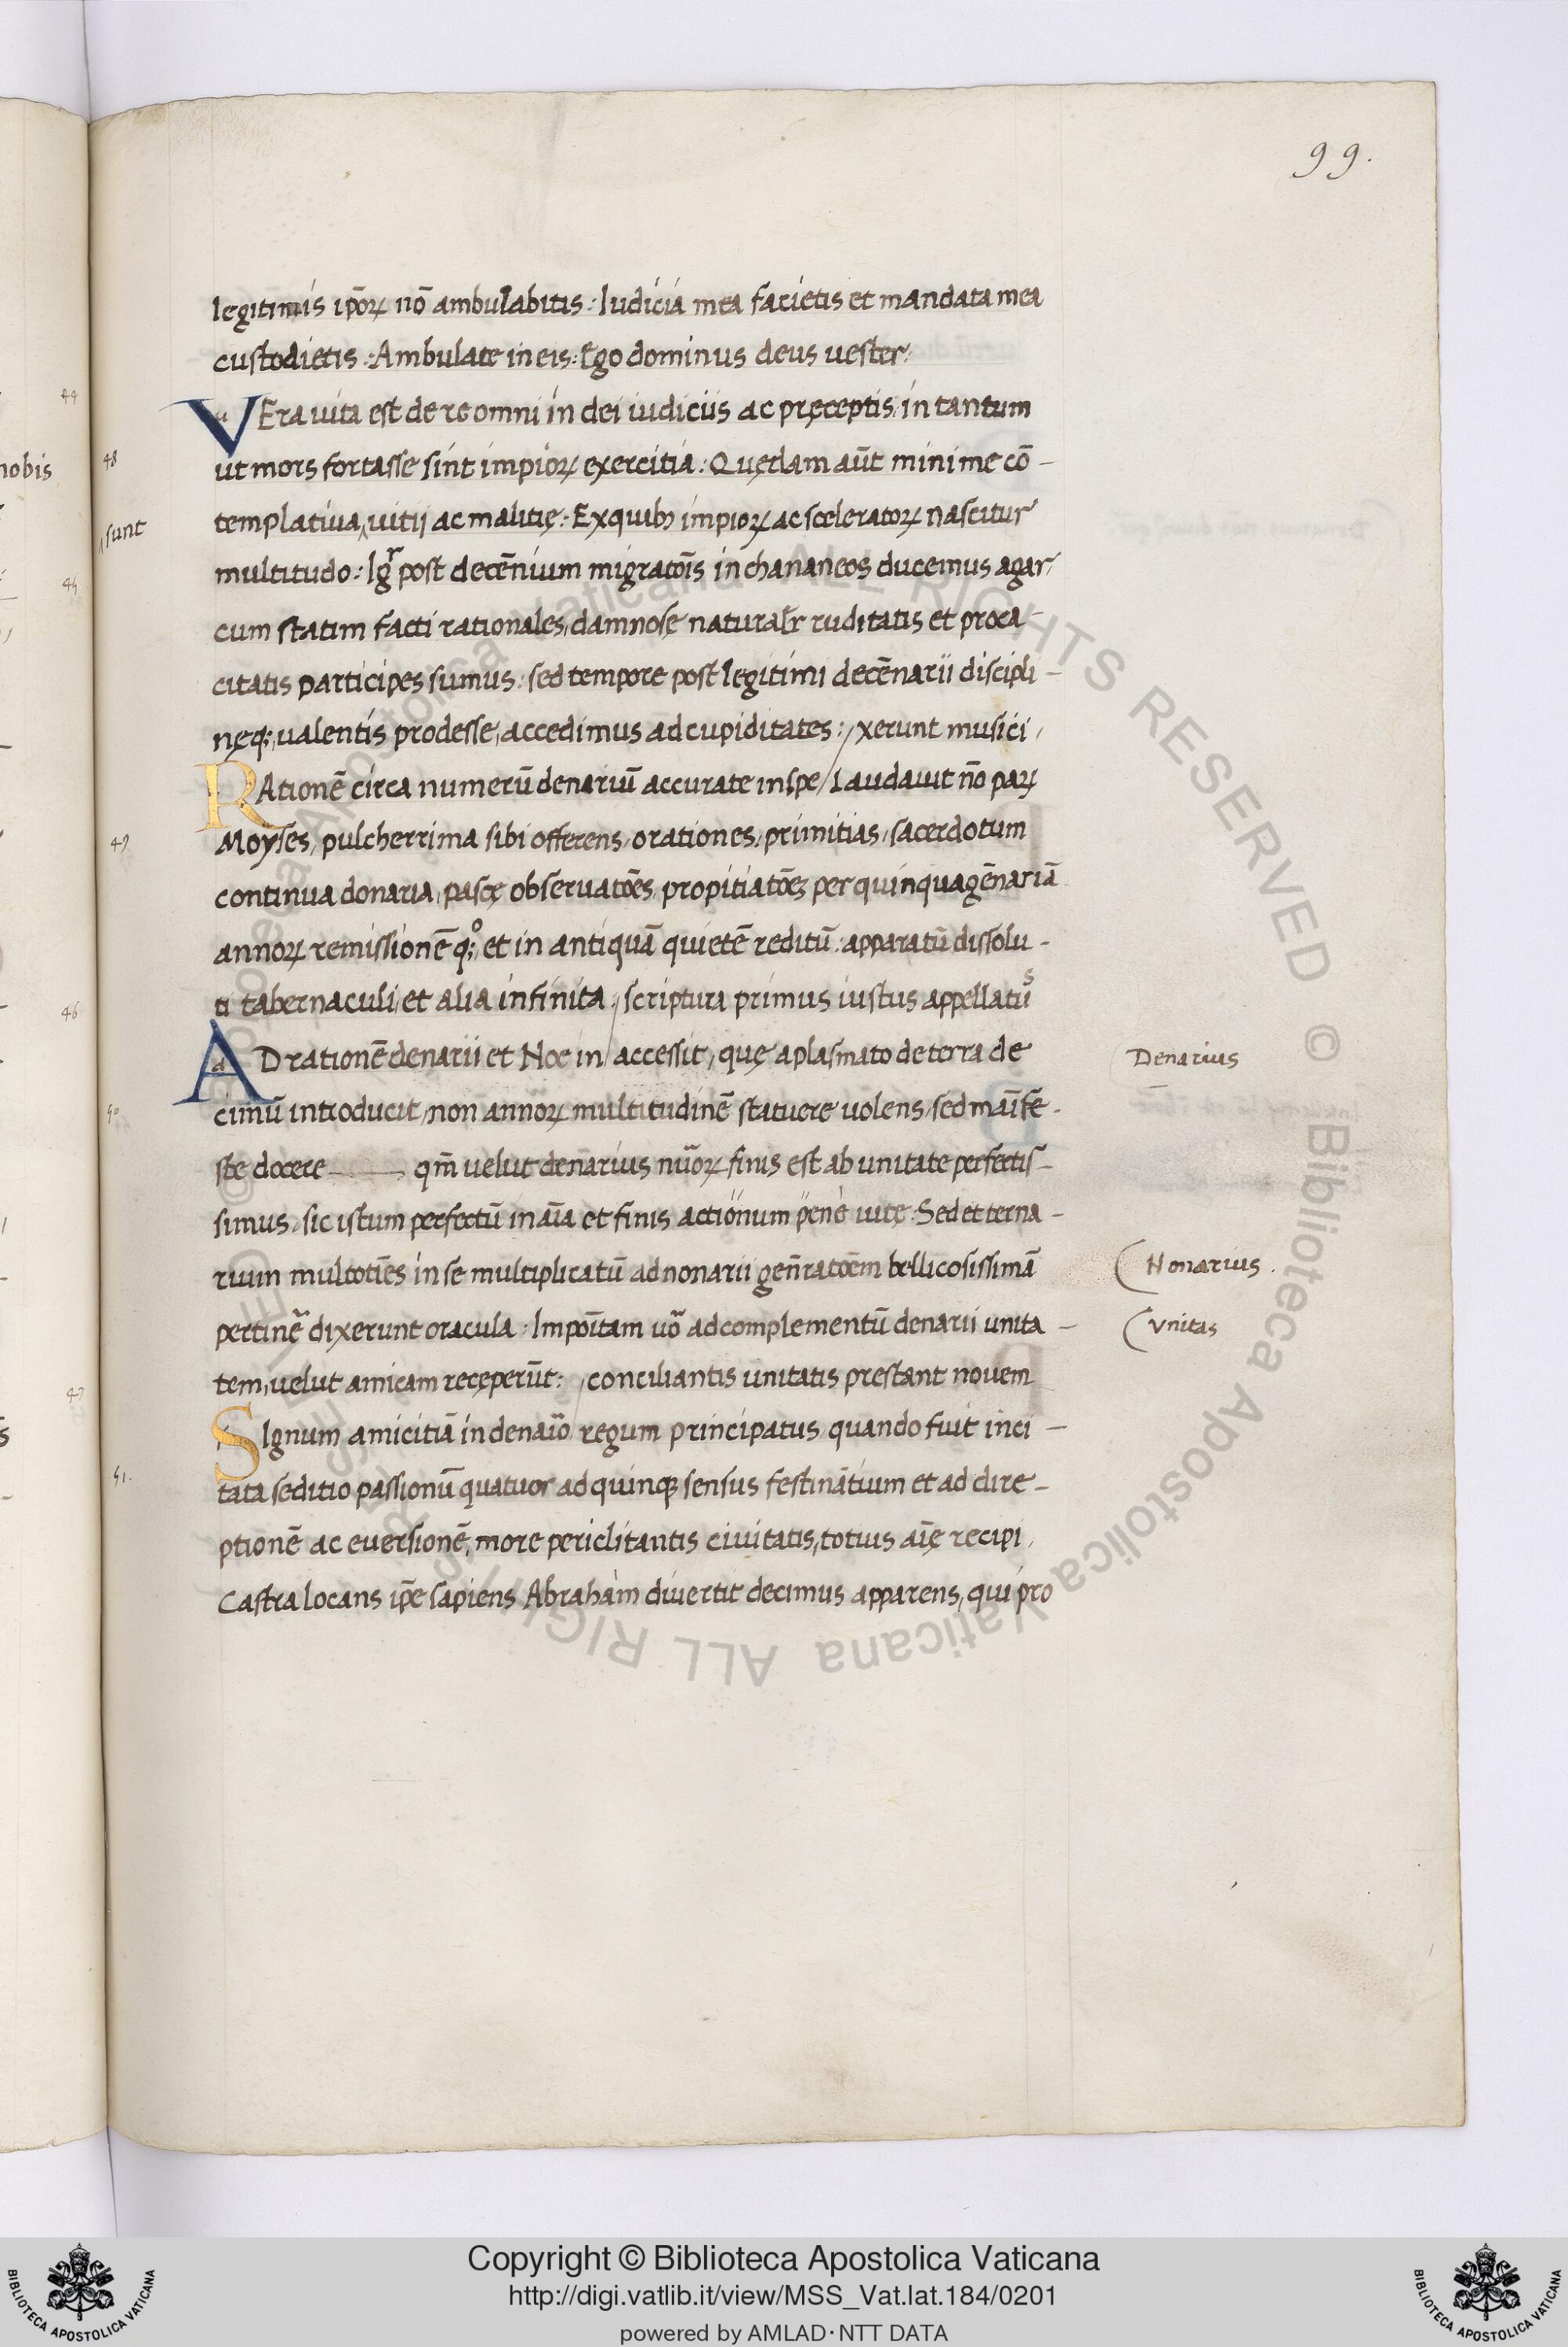 99.
legitimis ip̄oꝝ nō ambulabitis: Iudicia mea facietis et mandata mea
custodietis: Ambulate in eis: Ego dominus deus uester:
VEra uita est de re omni in dei iudiciis ac pręceptis, in tantum
ut mors fortasse sint impioꝝ exercitia: Quędam aūt minime cō-
templatiua, uitii ac malitię: Ex quibꝫ impioꝝ ac sceleratoꝝ nascitur
multitudo: Igr̄ post decēnium migratōis in chananeos ducemus agar,
cum statim facti rationales, damnosę naturalr̄ ruditatis et proca-
citatis participes sumus: sed tempore post legitimi decēnarii discipli-
nęqꝫ, ualentis prodesse, accedimus ad cupiditates: / xerunt musici,
RAtionē circa numerū denariū accurate inspe / Laudauit nō paꝝ
Moyses, pulcherrima sibi offerens, orationes, primitias, sacerdotum
continua donaria, pascę obseruatōes, propitiatōeꝫ per quinquagēnariā
annoꝝ remissionē qꝫ, et in antiquā quietē reditū: apparatū dissolu-
ti tabernaculi, et alia infinita. / scriptura primus iustus appellatus
AD rationē denarii et Noe in / accessit, quę a plasmato de terra de
cimū introducit, non annoꝝ multitudinē statuere uolens, sed māife-
ste docere qm̄ uelut denarius nūoꝝ finis est ab unitate perfectis-
simus, sic istum perfectū in aīa et finis actionum penè uitę: Sed et terna-
rium multotiēs in se multiplicatū ad nonarii gen̄ratōem bellicosissimā
pertinē dixerunt oracula: Impoītam uō ad complementū denarii unita-
tem, uelut amicam recęperūt: / conciliantis unitatis pręstant nouem
SIgnum amicitiā in denaīo regum principatus quando fuit inci-
tata seditio passionū quatuor ad quinqꝫ sensus festinātium et ad dire-
ptionē ac euersionē, more periclitantis ciuitatis, totius aīę recipi,
Castra locans ip̄e sapiens Abraham diuertit decimus apparens, qui pro
48
sunt
49
50
51.
Denarius
Nonarius.
Vnitas
nobis
44
45
46
47
© Biblioteca Apostolica Vaticana ALL RIGHTS RESERVED
Copyright © Biblioteca Apostolica Vaticana
http://digi.vatlib.it/view/MSS_Vat.lat.184/0201
powered by AMLAD·NTT DATA
BIBLIOTECA APOSTOLICA VATICANA
BIBLIOTECA APOSTOLICA VATICANA